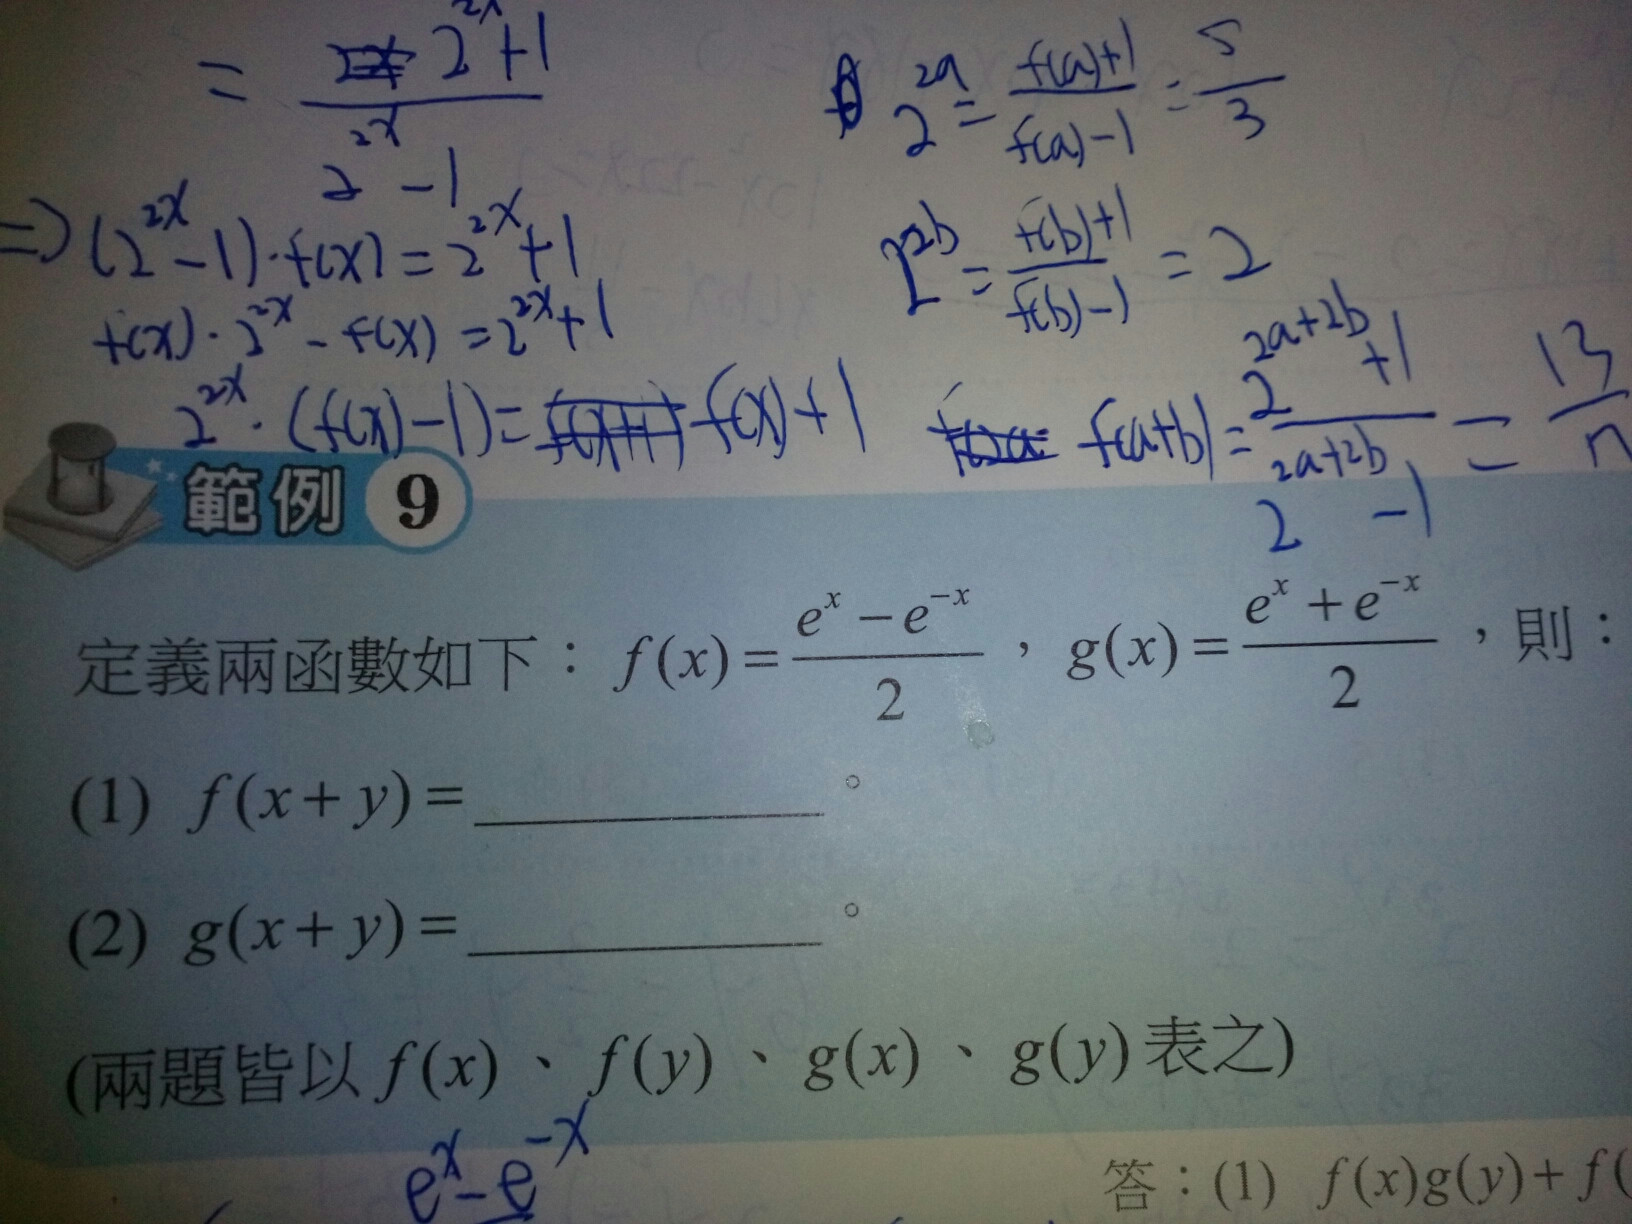 = 2^{2x}+1 / 2^{2x}-1
2^{2a} = f(a)+1 / f(a)-1 = 5/3
⇒ (2^{2x}-1)·f(x) = 2^{2x}+1
2^{2b} = f(b)+1 / f(b)-1 = 2
f(x)·2^{2x} - f(x) = 2^{2x}+1
2^{2x}·(f(x)-1) = f(x)+1
f(a+b) = 2^{2a+2b}+1 / 2^{2a+2b}-1 = 13/
範例 9
定義兩函數如下：f(x) = (e^x - e^{-x})/2，g(x) = (e^x + e^{-x})/2，則：
(1) f(x+y) = ________。
(2) g(x+y) = ________。
(兩題皆以 f(x)、f(y)、g(x)、g(y) 表之)
e^x - e^{-x}
答：(1) f(x)g(y)+f(